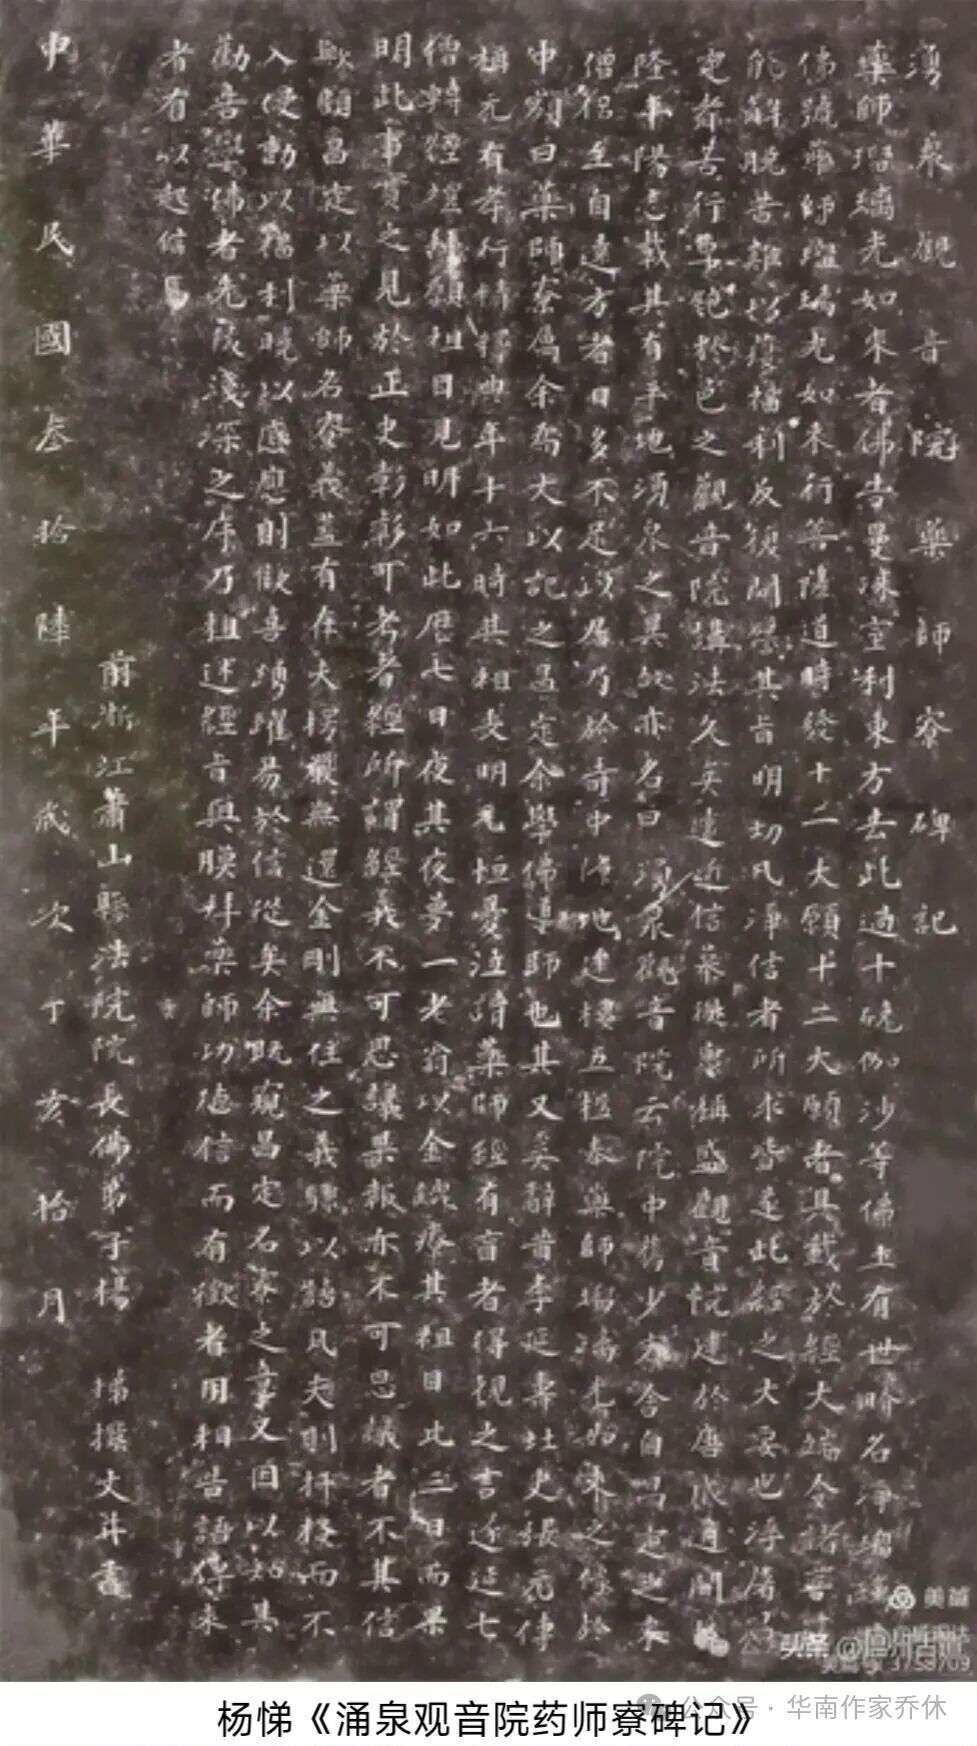 湧泉觀音院藥師寮碑記
藥師瑠璃光如來者佛告曼殊室利東方去此過十殑伽沙等佛土有世界名淨瑠璃
佛號藥師瑠璃光如來行菩薩道時發十二大願十二大願者具載於經大端令諸菩
能解脫苦難招獲福利反復開其旨明切凡淨信者所求皆遂此經之大要也浮屠昌
定者苦行早飽於邑之觀音院講法久矣遠近信慕稱盛觀音院建於唐咸通間
陸年陽志載其有平地湧泉之異故亦名曰湧泉觀音院云院中舊少寮舍自昌定之來
僧侶至自遠方者日多不足以居乃於寺中隙地建樓五楹奉藥師瑠璃光如來之像於
中顏曰藥師寮屬余為大以記之昌定余學佛導師也其又奚辭昔李延壽北史張元傳
稱元有孝行精釋典年十六時其祖喪明元恒憂泣讀藥師經有盲者得視之言遂延七
僧轉經燈願祖目見明如此歷七日夜其夜夢一老翁以金鎞療其祖目比三日而果
明此事實之見於正史彰彰可考者經所謂經義不可思議果報亦不可思議者不其信
歟顧昌定以藥師名寮義蓋有在夫楞嚴無還金剛無住之義驟以語凡夫則扞格而不
入侵動以福利曉以感應則歡喜踴躍易於信從矣余既窺昌定名寮之意又因以知其
勸善學佛者先後淺深之序乃粗述經旨與膜拜藥師功德信而有徵者用相告語俾來
者有以起信焉
前浙江蕭山縣法院院長佛弟子楊悌撰文并書
中華民國叁拾陸年歲次丁亥拾月
美篇
公众号
头条
杨悌《涌泉观音院药师寮碑记》
公众号·华南作家乔休